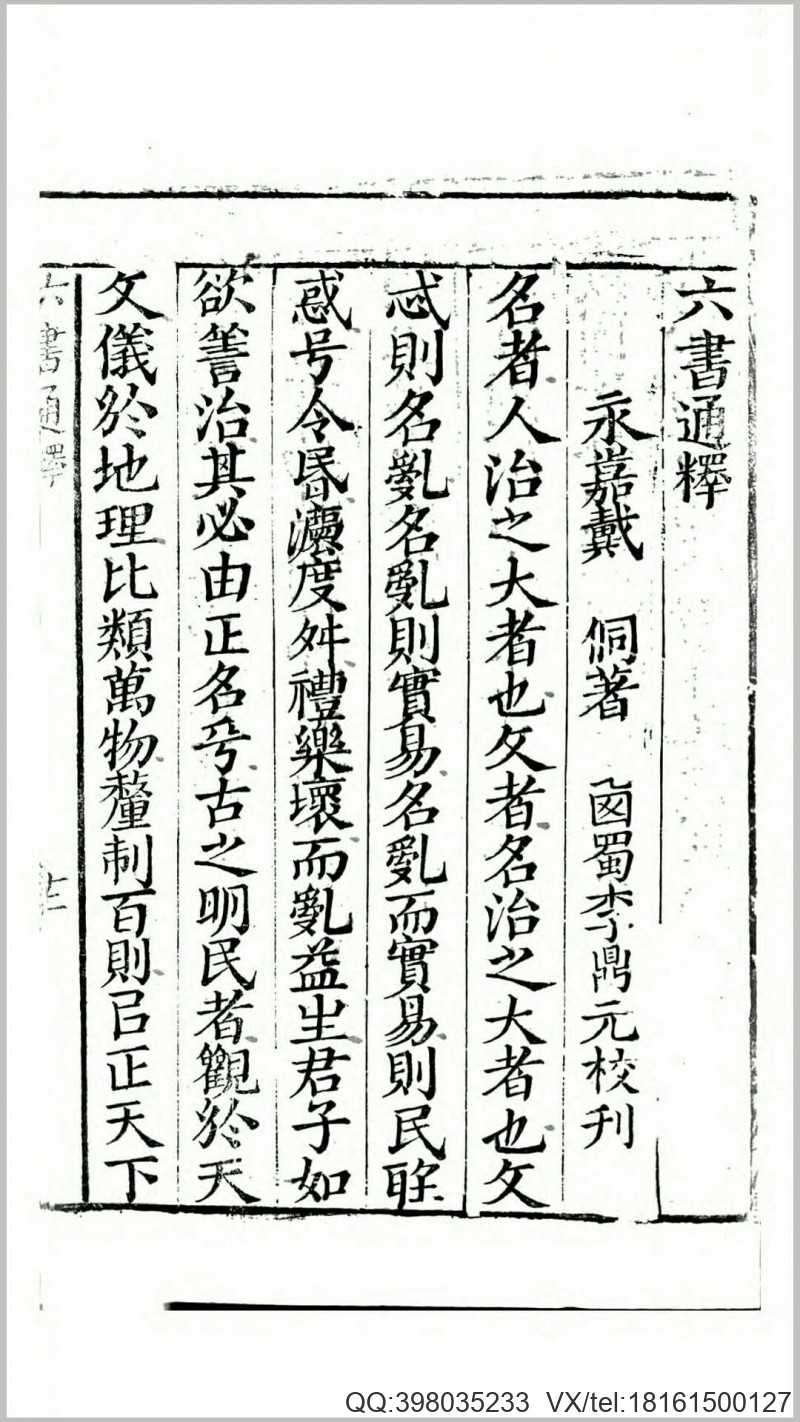 六書通釋
永嘉戴 侗著 㢴蜀李鼎元校刊
名者人治之大者也文者名治之大者也文
忒則名亂名亂則實易名亂而實易則民聽
惑号令昬灋度舛禮樂壞而亂益生君子如
欲善治其必由正名乎古之明民者觀於天
文儀於地理比類萬物釐制百則㠯正天下
六書通釋
十二
QQ:398035233 VX/tel:18161500127